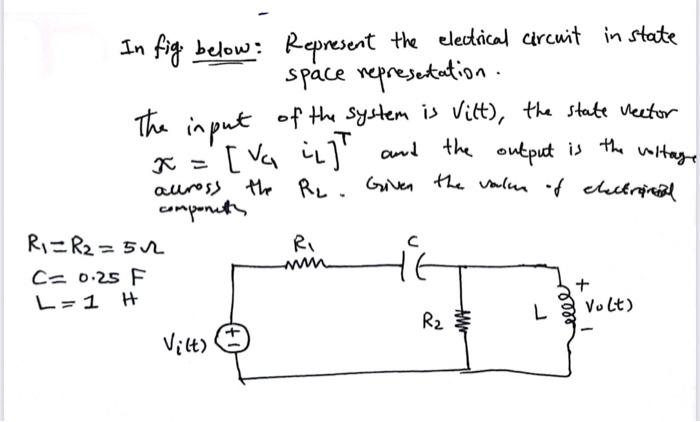 In fig. below: Represent the electrical circuit in state
space represetation.
The input of the system is Vi(t), the state vector
x = [VC1 iL]T and the output is the voltage
accross the RL. Given the values of
components
R1=R2=5Ω
C=0.25 F
L=1 H
R1
C
R2
L
+
Vo(t)
-
Vi(t)
+
-